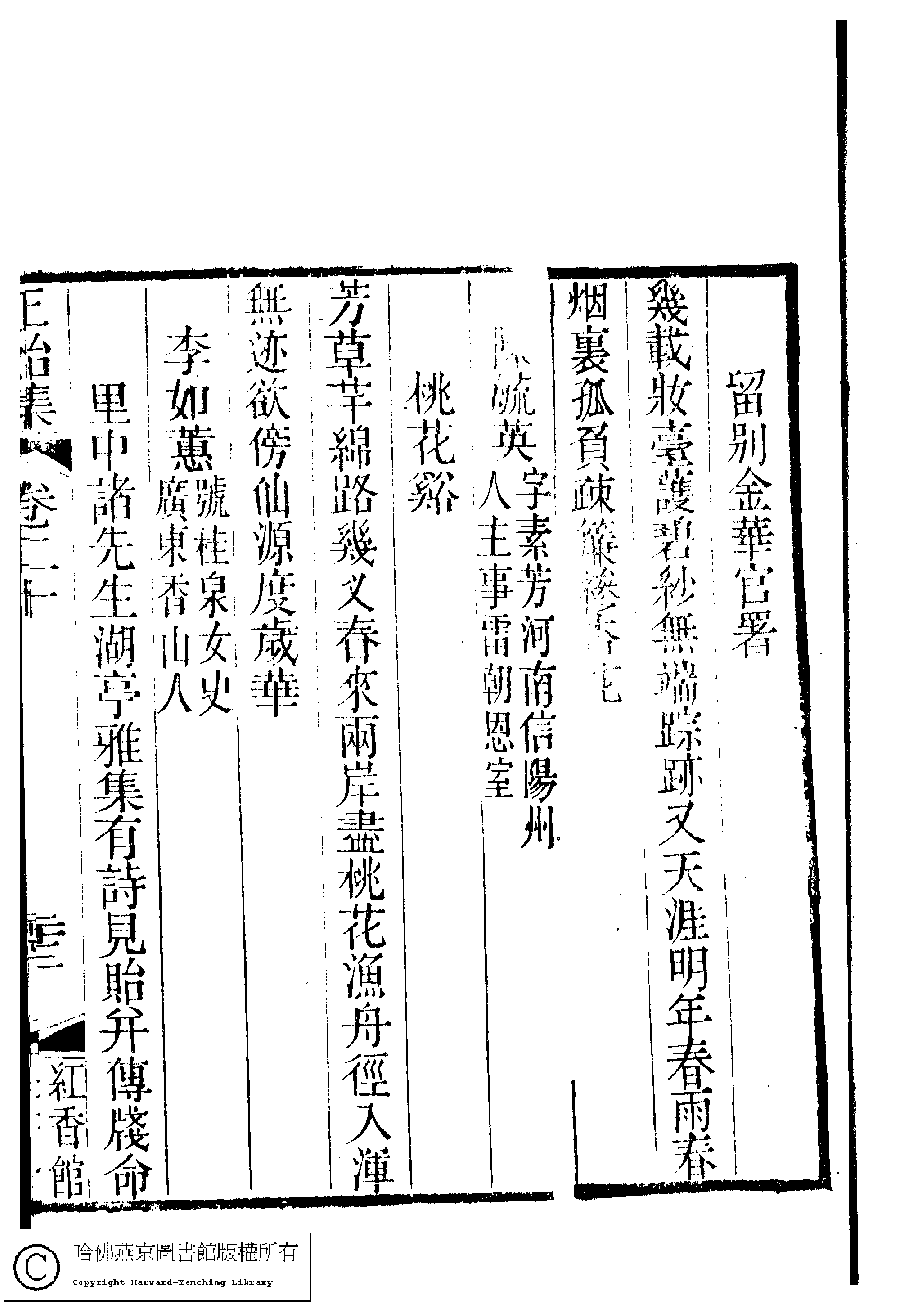 留别金華官署
幾載妝臺護碧紗無端踪跡又天涯明年春雨春
烟裏孤負疎簾
毓英
字素芳河南信陽州
人主事雷朝恩室
桃花谿
芳草芊綿路幾义春來兩岸盡桃花漁舟徑入渾
無迹欲傍仙源度歲華
李如蕙
號桂泉女史
廣東香山人
里中諸先生湖亭雅集有詩見貽幷傳牋命
正始集
卷二十
紅香館
哈佛燕京圖書館版權所有
Copyright Harvard-Yenching Library